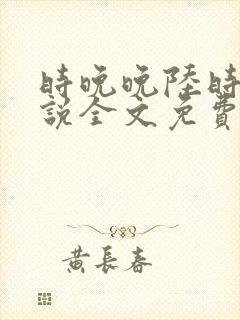 時晚晚陸時
說全文免費
黃長春